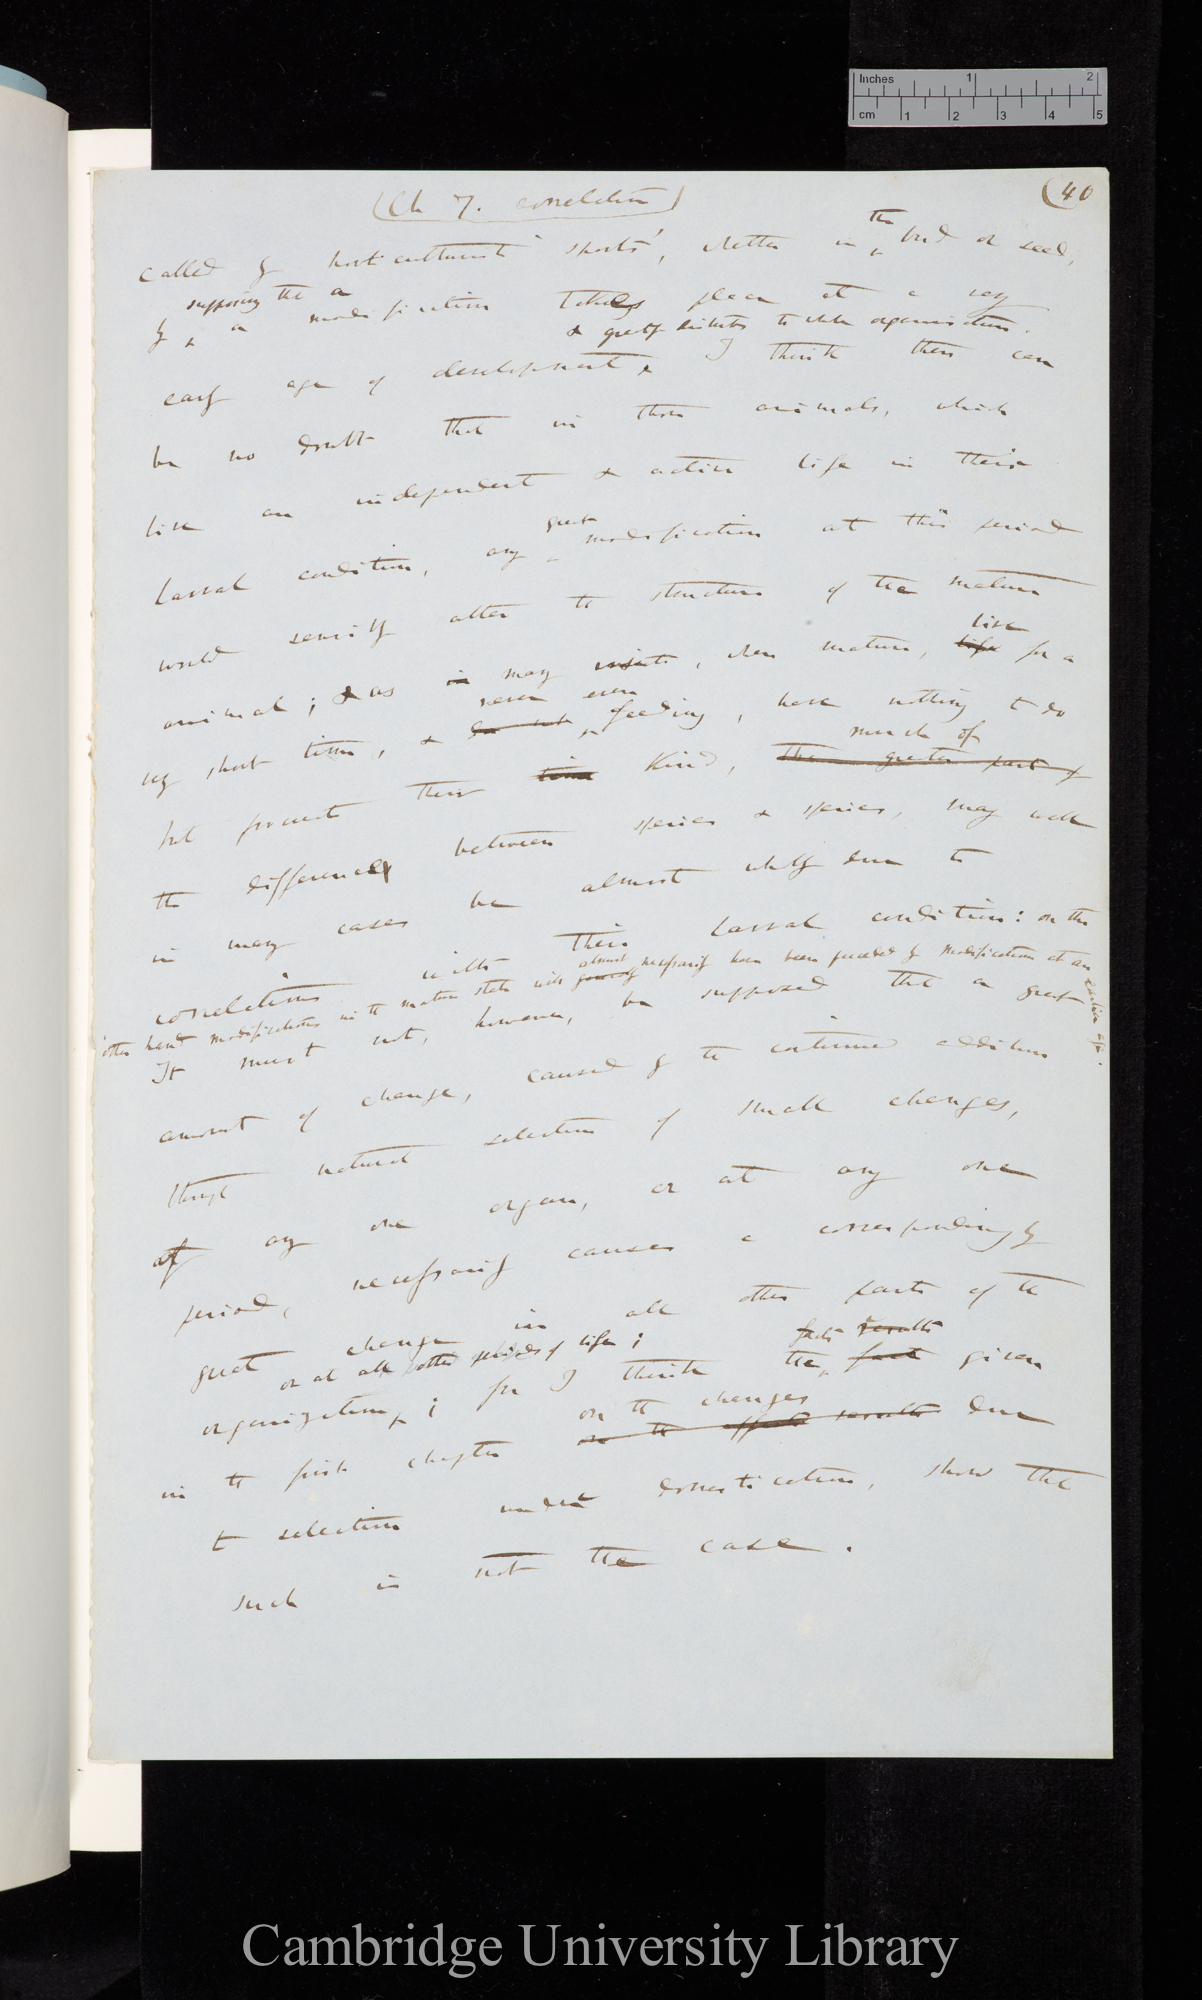 Inches 1 2
cm 1 2 3 4 5
(Ch 7. correlation)
(40
the
called by horticulturists 'sports', whether in bud or seed,
supposing that a
by a modification takes place at a very
& greatly disturbs the whole organisation.
early age of development, & I think there can
be no doubt that in those animals, which
live an independent & active life in their
great
larval condition, any modification at this period
would serious alter the structure of the mature
live
animal; & as in many insects, when mature, life for a
never even
very short time, & do not feeding, have nothing to do
much of
but procreate their time kind, the greater part of
the difference between species & species, may well
in many cases be almost wholly due to
correlations with their larval condition: on the
almost
other hand modifications in the mature state will generally necessarily have been preceded by modifications at an earlier age.
It must not, however, be supposed that a great
amount of change, caused by the continued addition
through natural selection of small changes,
of any one organ, or at any one
period, necessarily causes a correspondingly
great change in all other parts of the
or at all other periods of life;
facts results
organization; for I think the fact given
on the changes
in the first chapter on the effects results due
to selection under domestication, show that
such is not the case.
Cambridge University Library